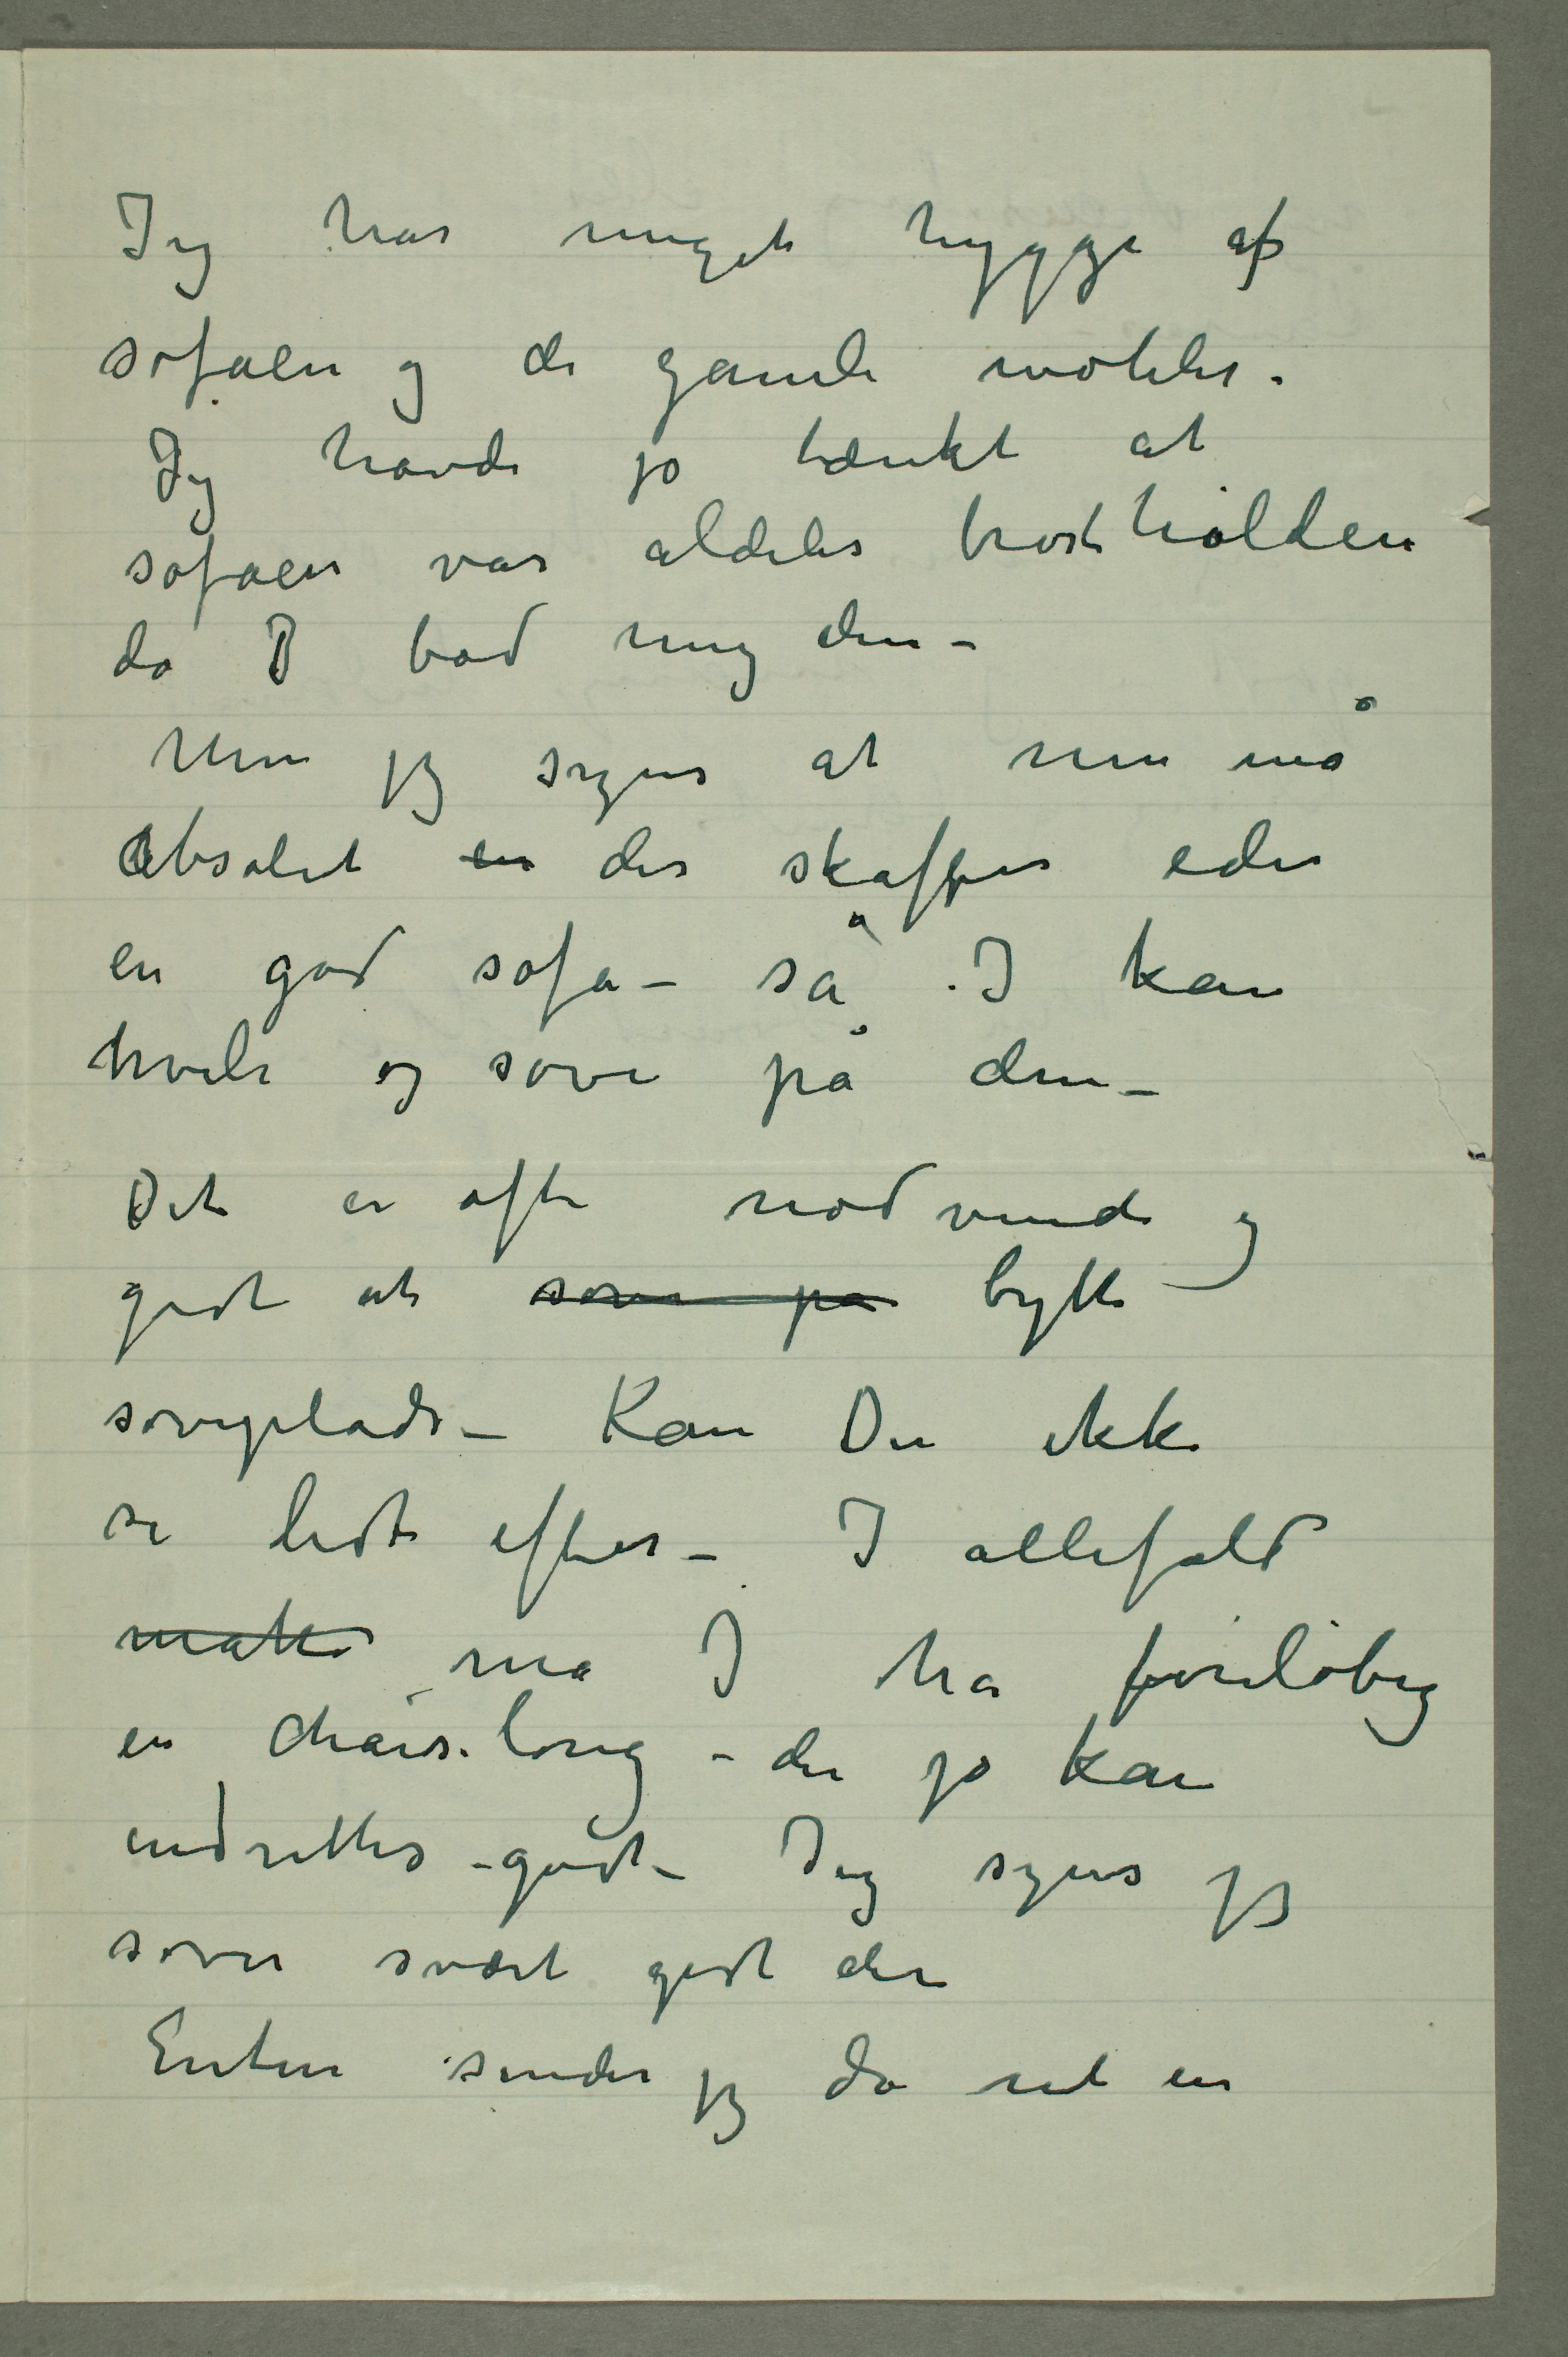 Jeg har meget hygge af
sofaen og de gamle møbler.
Jeg havde jo tænkt at
sofaen var aldeles brøstholden
da I bød mig den –
Men jeg synes at nu må
absolut en der skaffes eder
en god sofa – så I kan
hvile og sove på den –
Det er ofte nødvend og
godt at sove på bytte
soveplads – Kan Du ikke
se lidt efter – I allefald
måtte må I ha foreløbig
en chaiselong – der jo kan
indrettes – godt – Jeg synes jeg
sover svært godt der
Enten sender jeg da ned en